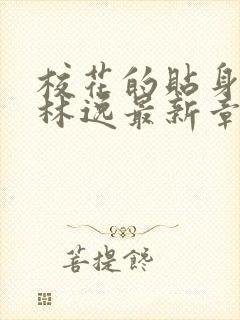 校花的贴身
林逸最新章
菩提馋